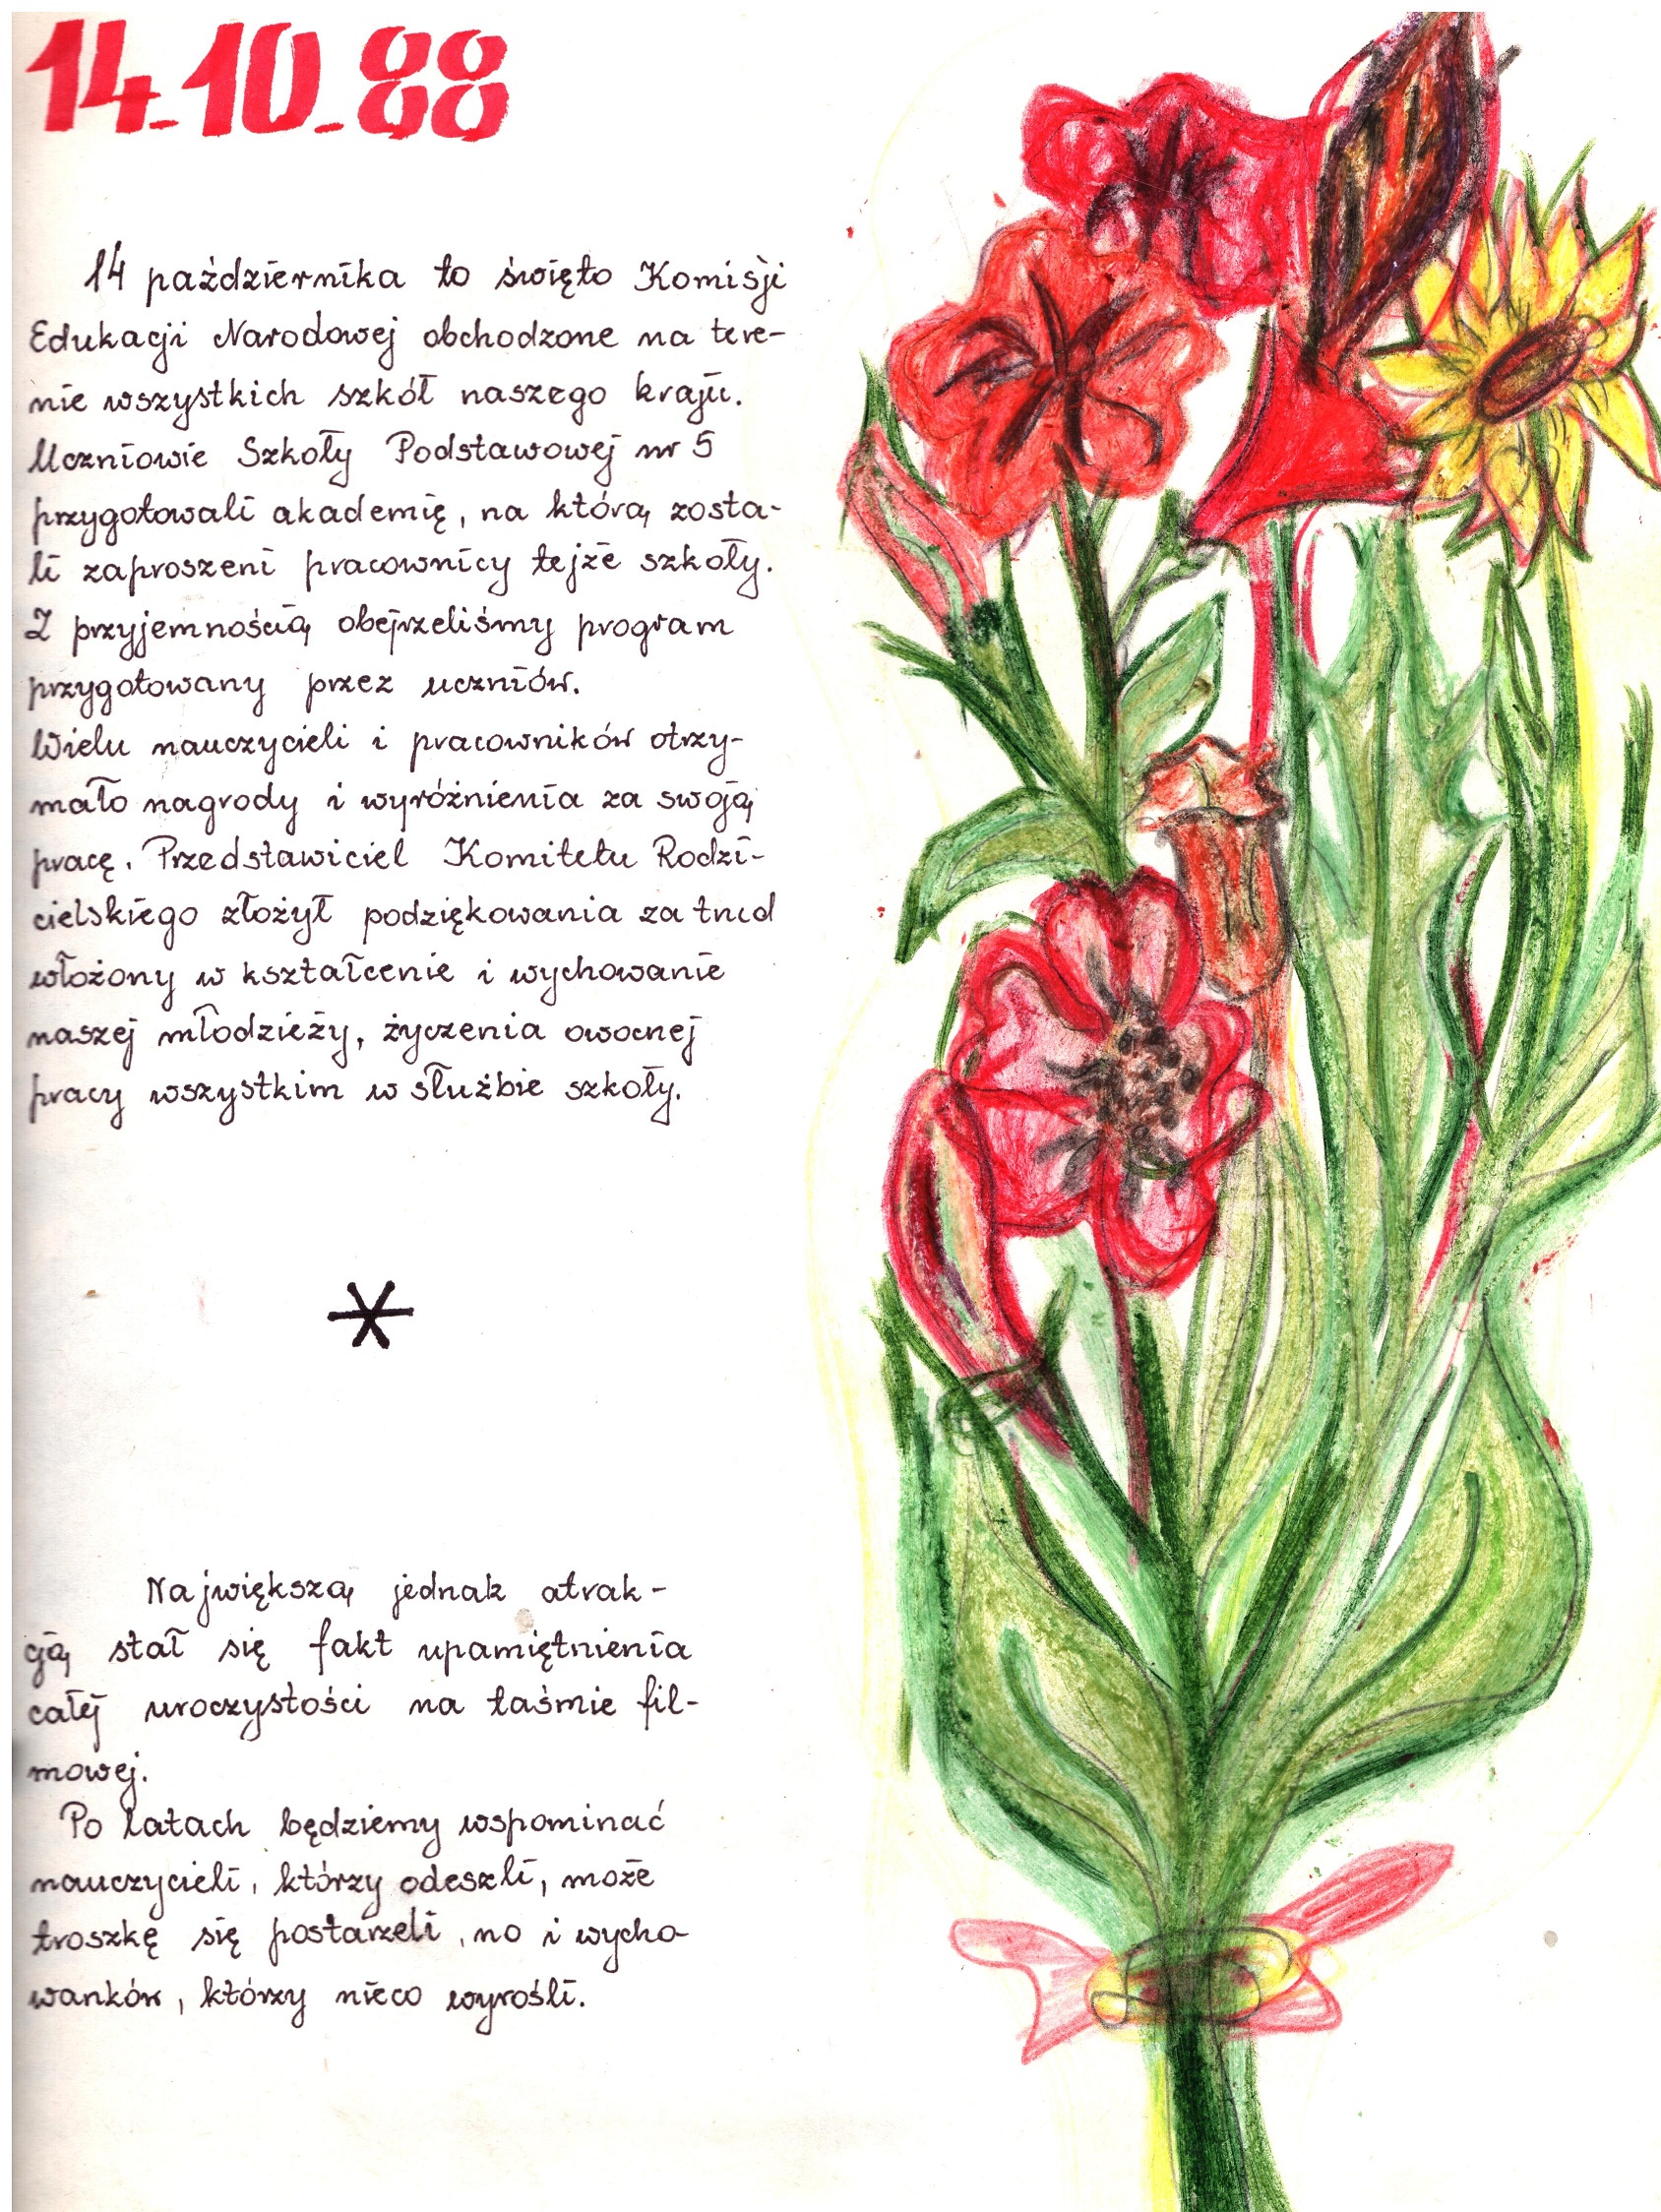 14.10.88
14 października to święto Komisji
Edukacji Narodowej obchodzone na tere-
nie wszystkich szkół naszego kraju.
Uczniowie Szkoły Podstawowej nr 5
przygotowali akademię, na którą zosta-
li zaproszeni pracownicy tejże szkoły.
Z przyjemnością obejrzeliśmy program
przygotowany przez uczniów.
Wielu nauczycieli i pracowników otrzy-
mało nagrody i wyróżnienia za swoją
pracę. Przedstawiciel Komitetu Rodzi-
cielskiego złożył podziękowania za trud
włożony w kształcenie i wychowanie
naszej młodzieży, życzenia owocnej
pracy wszystkim w służbie szkoły.
*
Największą jednak atrak-
cją stał się fakt upamiętnienia
całej uroczystości na taśmie fil-
mowej.
Po latach będziemy wspominać
nauczycieli, którzy odeszli, może
troszkę się postarzeli, no i wycho-
wanków, którzy nieco wyrośli.